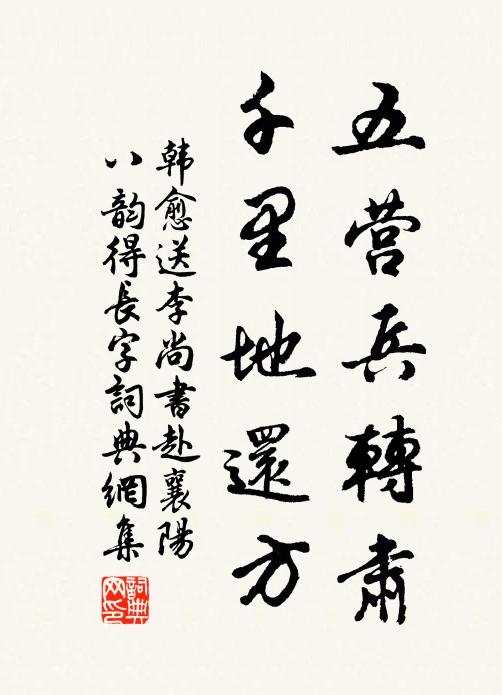 五营兵轉肅
千里地還方
韩愈送李尚書赴襄陽
八韵得長字詞典網集
詞典
网印